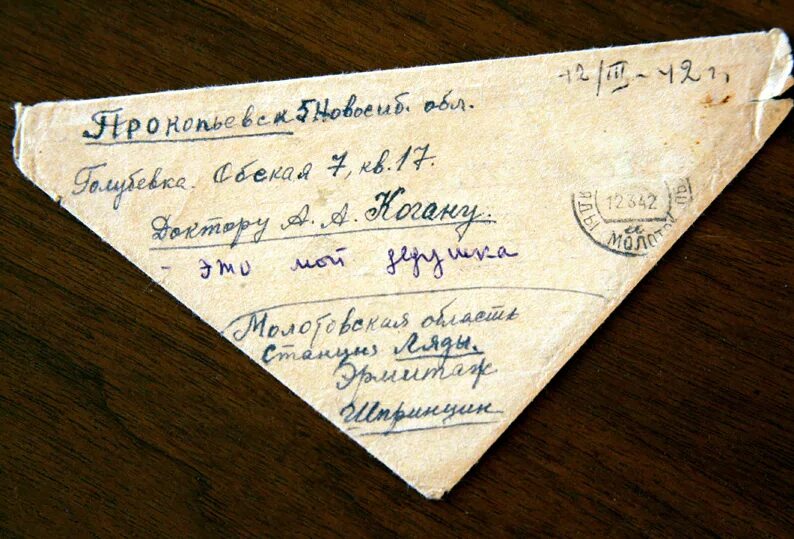 12/III - 42 г.
Прокопьевск 5 Новосиб. обл.
Голубевка. Обская 7, кв. 17.
Доктору А. А. Когану.
- это мой дедушка
Молотовская область
станция Ляды.
Эрмитаж
Шпринцин
ЛЯДЫ
12 3 42
МОЛОТОВ